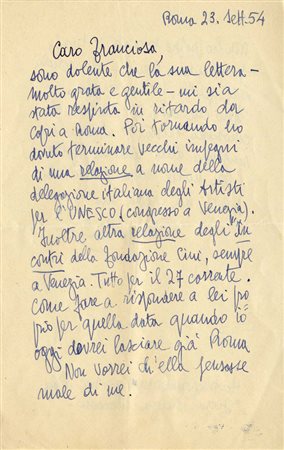 Roma 23. Sett. 54
Caro Franciosa,
sono dolente che la sua lettera –
molto grata e gentile – mi sia
stata respinta in ritardo da
Capri a Roma. Poi tornando ho
dovuto terminare vecchi impegni
di una relazione a nome della
delegazione italiana degli Artisti
per l'UNESCO (congresso a Venezia).
Inoltre, altra relazione degli In
contri della Fondazione Cini, sempre
a Venezia. Tutto per il 27 corrente.
come fare a rispondere a lei pro
prio per quella data quando io
oggi dovrei lasciare già Roma
Non vorrei ch'ella pensasse
male di me.